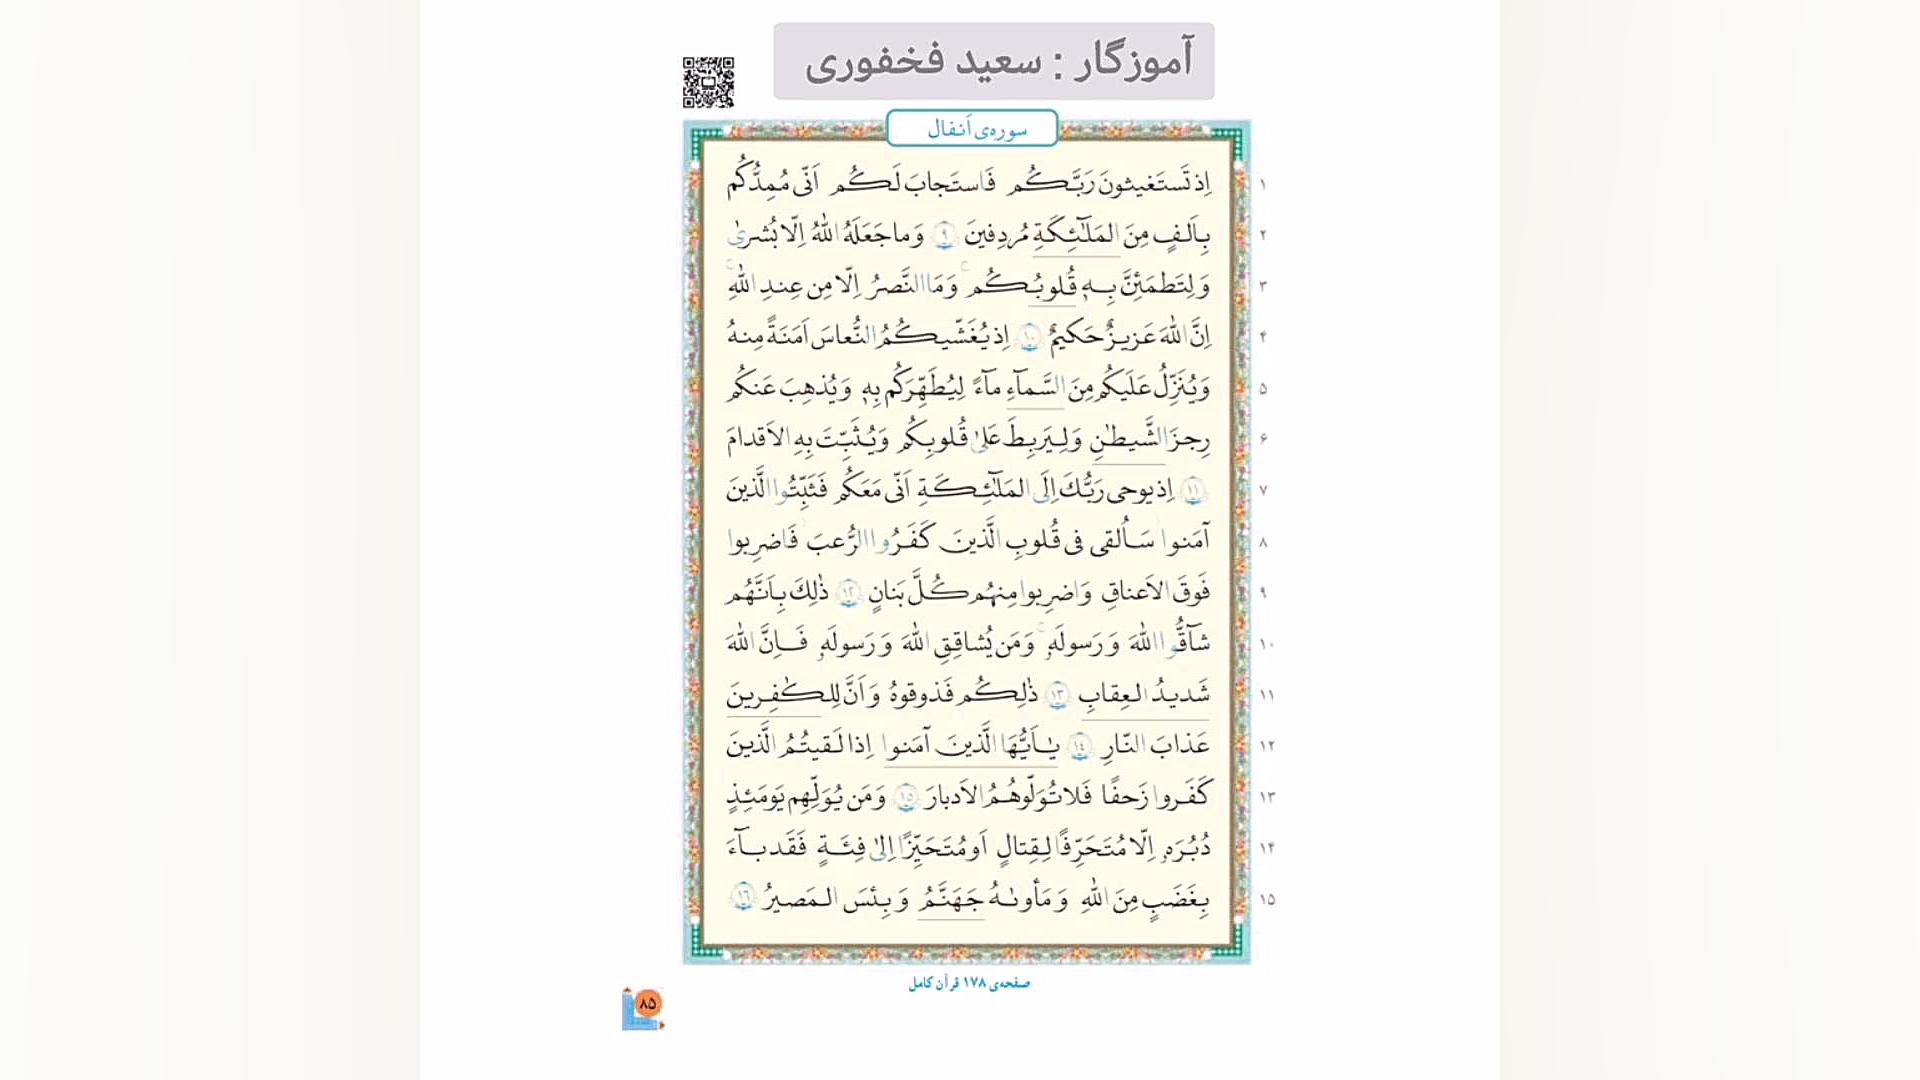 آموزگار : سعید فخفوری
سوره‌ی اَنفال
اِذ تَستَغیثونَ رَبَّکُم فَاستَجابَ لَکُم اَنّی مُمِدُّکُم ۱
بِاَلفٍ مِنَ المَلٰٓئِکَةِ مُردِفینَ ﴿۹﴾ وَ ما جَعَلَهُ اللّٰهُ اِلّا بُشریٰ ۲
وَ لِتَطمَئِنَّ بِهٖ قُلوبُکُم ۚ وَ مَا النَّصرُ اِلّا مِن عِندِ اللّٰهِ ۚ ۳
اِنَّ اللّٰهَ عَزیزٌ حَکیمٌ ﴿۱۰﴾ اِذ یُغَشّیکُمُ النُّعاسَ اَمَنَةً مِنهُ ۴
وَ یُنَزِّلُ عَلَیکُم مِنَ السَّمآءِ مآءً لِیُطَهِّرَکُم بِهٖ وَ یُذهِبَ عَنکُم ۵
رِجزَ الشَّیطٰنِ وَ لِیَربِطَ عَلیٰ قُلوبِکُم وَ یُثَبِّتَ بِهِ الاَقدامَ ۶
﴿۱۱﴾ اِذ یوحی رَبُّکَ اِلَی المَلٰٓئِکَةِ اَنّی مَعَکُم فَثَبِّتُوا الَّذینَ ۷
آمَنوا سَاُلقی فی قُلوبِ الَّذینَ کَفَرُوا الرُّعبَ فَاضرِبوا ۸
فَوقَ الاَعناقِ وَ اضرِبوا مِنهُم کُلَّ بَنانٍ ﴿۱۲﴾ ذٰلِکَ بِاَنَّهُم ۹
شآقُّوا اللّٰهَ وَ رَسولَهٗ ۚ وَ مَن یُشاقِقِ اللّٰهَ وَ رَسولَهٗ فَاِنَّ اللّٰهَ ۱۰
شَدیدُ العِقابِ ﴿۱۳﴾ ذٰلِکُم فَذوقوهُ وَ اَنَّ لِلکٰفِرینَ ۱۱
عَذابَ النّارِ ﴿۱۴﴾ یٰاَیُّهَا الَّذینَ آمَنوا اِذا لَقیتُمُ الَّذینَ ۱۲
کَفَروا زَحفًا فَلا تُوَلّوهُمُ الاَدبارَ ﴿۱۵﴾ وَ مَن یُوَلِّهِم یَومَئِذٍ ۱۳
دُبُرَهٗ اِلّا مُتَحَرِّفًا لِقِتالٍ اَو مُتَحَیِّزًا اِلیٰ فِئَةٍ فَقَد بآءَ ۱۴
بِغَضَبٍ مِنَ اللّٰهِ وَ مَأوىٰهُ جَهَنَّمُ وَ بِئسَ المَصیرُ ﴿۱۶﴾ ۱۵
صفحه‌ی ۱۷۸ قرآن کامل
۸۵